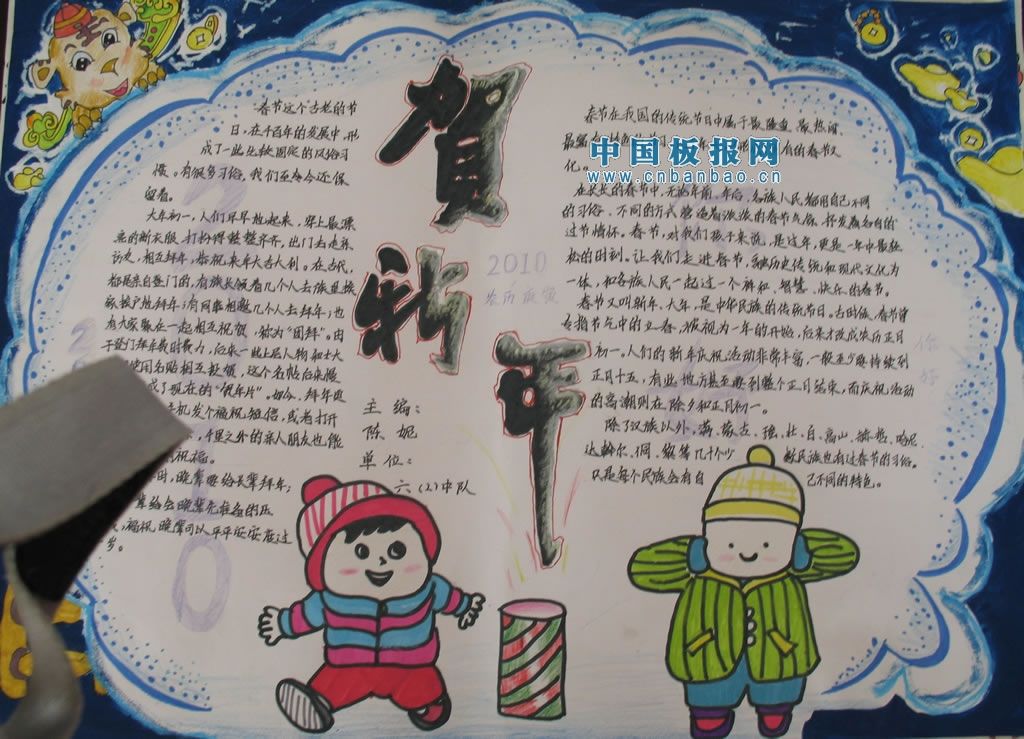 春节这个古老的节
日，在千百年的发展中，形
成了一些比较固定的风俗习
惯。有很多习俗，我们至今还保
留着。
大年初一，人们早早起来，穿上最漂
亮的新衣服，打扮得整整齐齐，出门去走亲
访友，相互拜年，恭祝来年大吉大利。在古代，
都是亲自登门的，有族长领着几个人去族里挨
家挨户地拜年；有同事相邀几个人去拜年；也
有大家聚在一起相互祝贺，称为“团拜”。由
于登门拜年费时费力，后来一些上层人物和士大
使用名贴相互投领，这个名帖后来慢
成了现在的“贺年片”。如今，拜年更
手机发个福祝短信，或者打开
，千里之外的亲人朋友也能
祝福。
，晚辈要给长辈拜年；
辈给会晚辈先准备的压
，福祝晚辈可以平平安安度过
岁。
贺新年
2010
主编：
陈妮
单位：
六（2）中队
春节在我国的传统节日中属于最隆重、最热闹、
有的春节文
化。
中国板报网
www.cnbanbao.cn
在长长的春节中，无论年前、年后，各族人民都用自己不同
的习俗、不同的方式营造着浓浓的春节气氛，抒发着各自的
过节情怀。春节，对我们孩子来说，是过年，更是一年中最轻
松的时刻。让我们走进春节，融历史传统和现代文化为
一体，和各族人民一起过一个祥和、智慧、快乐的春节。
春节又叫新年、大年，是中华民族的传统节日。古时候，春节曾
专指节气中的立春，被视为一年的开始，后来才改成农历正月
初一。人们的新年庆祝活动非常丰富，一般至少要持续到
正月十五，有些地方甚至要到整个正月结束，而庆祝活动
的高潮则在除夕和正月初一。
除了汉族以外，满、蒙古、瑶、壮、白、高山、赫哲、哈尼
达斡尔、侗、黎等几十个少 数民族也有过春节的习俗。
只是每个民族会有自 己不同的特色。
你好
2010